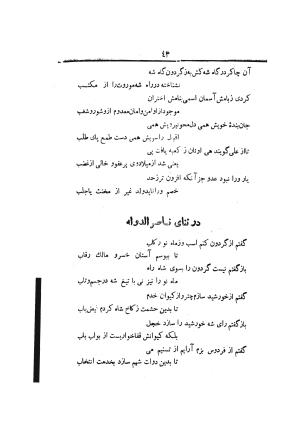 ۴۳
آن چاکر درگاه شه کش به ز گردون گاه شه
نشناخته در راه شه موروث را از مکتسب
کردی زبانش آسمان اسمی بنامش اختران
موجود از او امن و امان معدوم از و شور و شغب
جان بنده خویش همی دل محو پیشش همی
اقبال پیشش همی دست طمع پای طلب
تا از علی گویند هی اوتان ز کعبه یافت پی
یعنی شد از میلاد وی پر عفو و خالی از غضب
یار ورا نبود عدو جز آنکه افزون تر ز حد
خصم ورا ناید ولد غیر از مخنث یا جلب
در ثنای ناصرالدوله
گفتم از گردون کنم اسب و ز ماه نو رکاب
تا ببوسم آستان خسرو مالک رقاب
باز گفتم نیست گردون را بسوی شاه راه
ماه نو را نیز نی با تیغ شه در جسم تاب
گفتم از خورشید سازم چتر و از کیوان خدم
تا بدین حشمت ز کاخ شاه گردم فیض یاب
باز گفتم رای شه خورشید را سازد خجل
بلکه کیوانش قفا خوار دست از بواب باب
گفتم از فردوس بزم آرایم از تسنیم می
تا بدین دولت شهم سازد بخدمت انتخاب